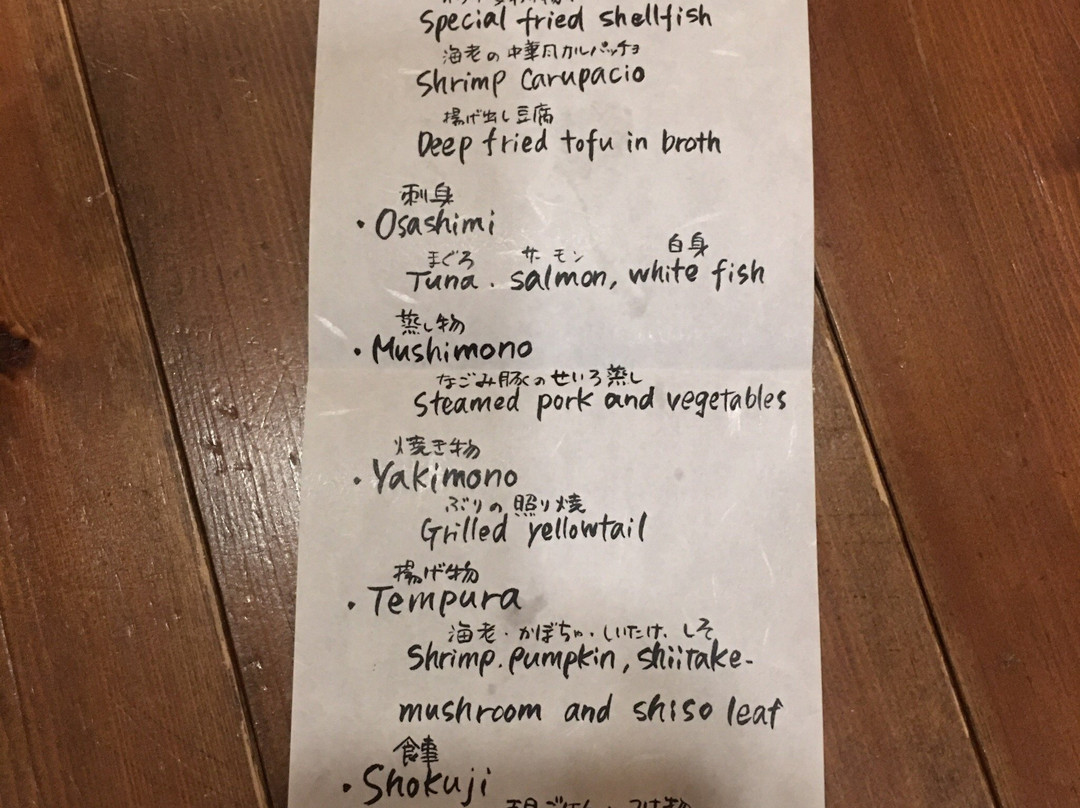 Special fried shellfish
海老の中華風カルパッチョ
Shrimp Carupacio
揚げ出し豆腐
Deep fried tofu in broth
刺身
・Osashimi
まぐろ サーモン 白身
Tuna. salmon, white fish
蒸し物
・Mushimono
なごみ豚のせいろ蒸し
Steamed pork and vegetables
焼き物
・Yakimono
ぶりの照り焼
Grilled yellowtail
揚げ物
・Tempura
海老・かぼちゃ・しいたけ、しそ
Shrimp. pumpkin, shiitake-
mushroom and shiso leaf
食事
・Shokuji